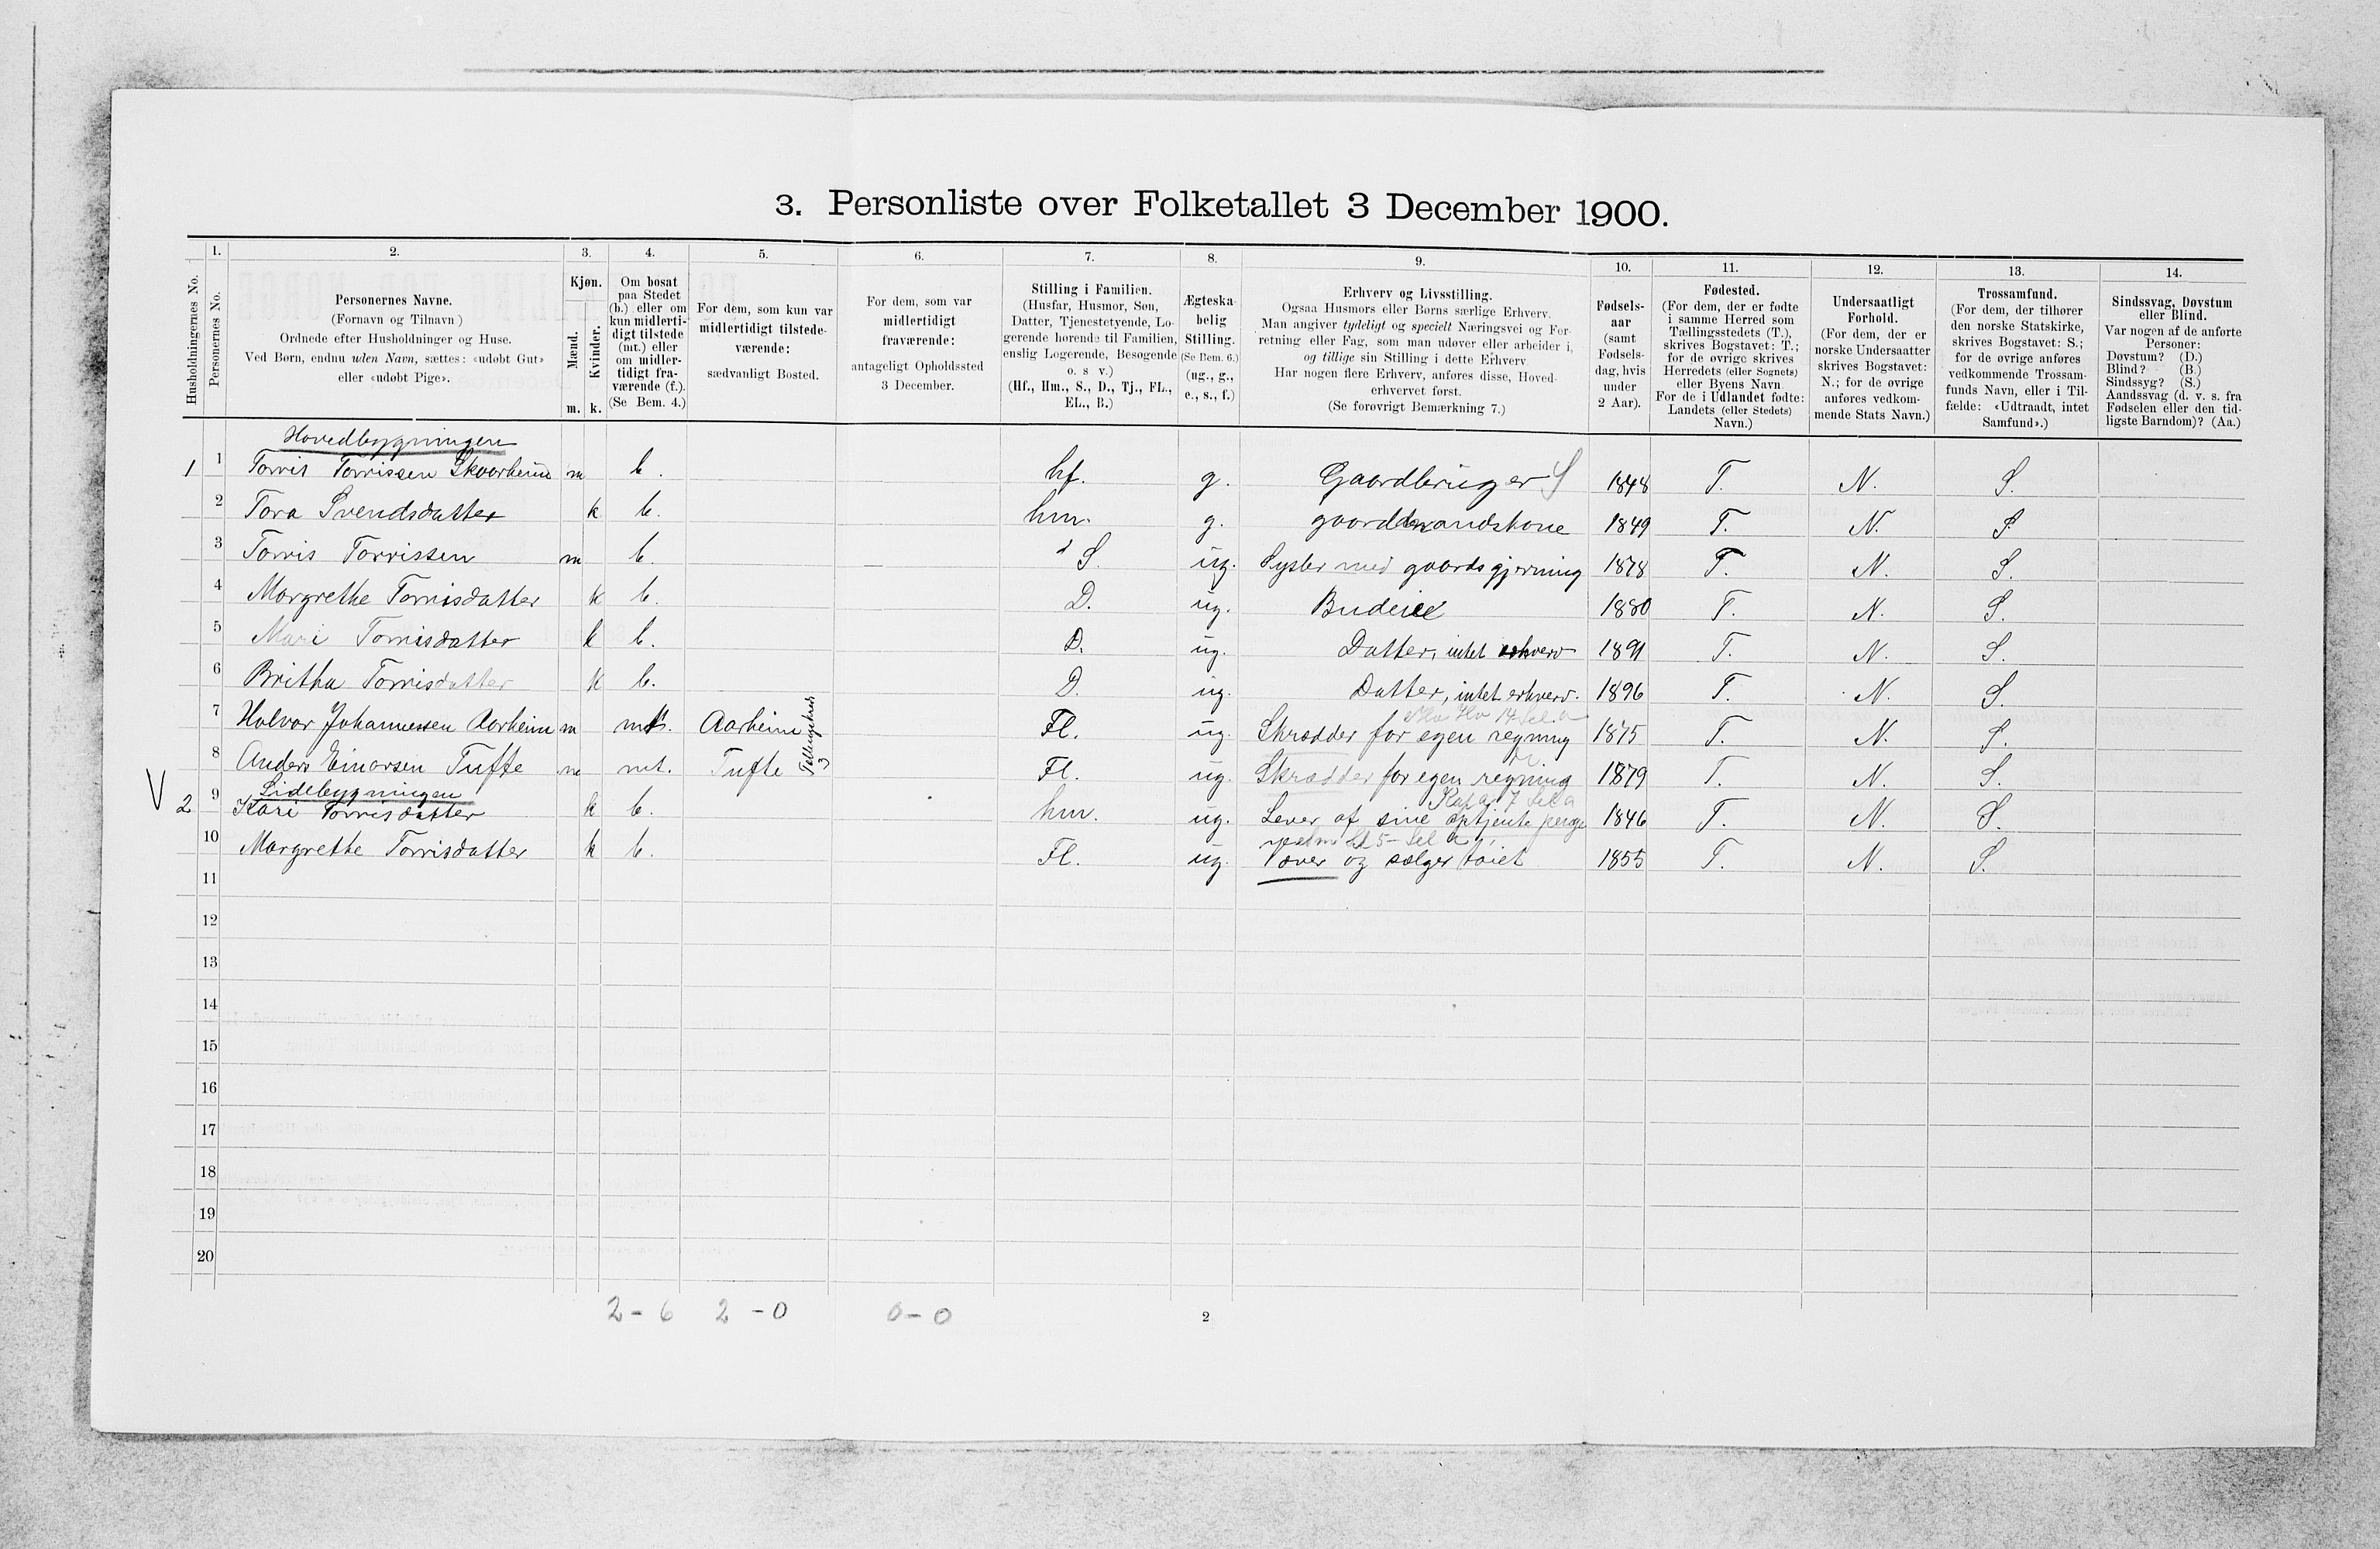 3. Personliste over Folketallet 3 December 1900.
1. 2. 3. 4. 5. 6. 7. 8. 9. 10. 11. 12. 13. 14.
Husholdningernes No.
Personernes No.
Personernes Navne.
(Fornavn og Tilnavn)
Ordnede efter Husholdninger og Huse.
Ved Børn, endnu uden Navn, sættes: «udøbt Gut»
eller «udøbt Pige».
Kjøn.
Mænd.
Kvinder.
m. k.
Om bosat
paa Stedet
(b.) eller om
kun midlerti-
digt tilstede
(mt.) eller
om midler-
tidigt fra-
værende (f.).
(Se Bem. 4.)
For dem, som kun var
midlertidigt tilstede-
værende:
sædvanligt Bosted.
For dem, som var
midlertidigt
fraværende:
antageligt Opholdssted
3 December.
Stilling i Familien.
(Husfar, Husmor, Søn,
Datter, Tjenestetyende, Lo-
gerende hørende til Familien,
enslig Logerende, Besøgende
o. s v.)
(Hf., Hm., S., D., Tj., FL.,
EL., B.)
Ægteska-
belig
Stilling.
(Se Bem. 6.)
(ug., g.,
e., s., f.)
Erhverv og Livsstilling.
Ogsaa Husmors eller Børns særlige Erhverv.
Man angiver tydeligt og specielt Næringsvei og For-
retning eller Fag, som man udøver eller arbeider i,
og tillige sin Stilling i dette Erhverv.
Har nogen flere Erhverv, anføres disse, Hoved-
erhvervet først.
(Se forøvrigt Bemærkning 7.)
Fødsels-
aar
(samt
Fødsels-
dag, hvis
under
2 Aar).
Fødested.
(For dem, der er fødte
i samme Herred som
Tællingsstedets (T.),
skrives Bogstavet: T.;
for de øvrige skrives
Herredets (eller Sognets)
eller Byens Navn
For de i Udlandet fødte:
Landets (eller Stedets)
Navn.)
Undersaatligt
Forhold.
(For dem, der er
norske Undersaatter
skrives Bogstavet:
N.; for de øvrige
anføres vedkom-
mende Stats Navn.)
Trossamfund.
(For dem, der tilhører
den norske Statskirke,
skrives Bogstavet: S.;
for de øvrige anføres
vedkommende Trossam-
funds Navn, eller i Til-
fælde: «Udtraadt, intet
Samfund».)
Sindssvag, Døvstum
eller Blind.
Var nogen af de anførte
Personer:
Døvstum? (D.)
Blind? (B.)
Sindssyg? (S.)
Aandssvag (d. v. s. fra
Fødselen eller den tid-
ligste Barndom)? (Aa.)
Hovedbygningen
1 1 Torris Torrissen Skaarheim m b. hf. g. Gaardbruger S 1848 T. N. S.
2 Tora Svendsdatter k b. hm. g. gaardmandskone 1849 T. N. S.
3 Torris Torrissen m b. S. ug. Sysler med gaardsgjerning 1878 T. N. S.
4 Margrethe Torrisdatter k b. D. ug. Budeie 1880 T. N. S.
5 Mari Torrisdatter k b. D. ug. Datter, intet erhverv 1891 T. N. S.
6 Britha Torrisdatter k b. D. ug. Datter, intet erhverv. 1896 T. N. S.
7 Halvor Johannessen Aarheim m mt. Aarheim Fl. ug. Skrædder for egen regning 1875 T. N. S.
8 Anders Einarsen Tufte m mt. Tufte Fl. ug. Skrædder for egen regning 1879 T. N. S.
Sidebygningen
V 2 9 Kari Torrisdatter k b. hm. ug. Lever af sine optjente penge 1846 T. N. S.
10 Margrethe Torrisdatter k b. Fl. ug. Væver og sælger tøiet 1855 T. N. S.
11
12
13
14
15
16
17
18
19
20
2 - 6 2 - 0 0 - 0 2